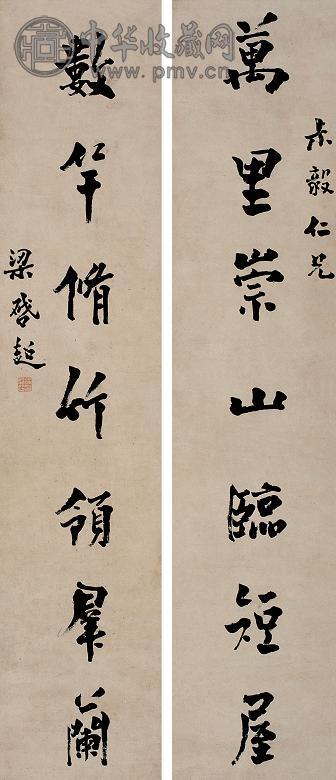 中华收藏网
www.pmv.cn
毅仁兄
萬里崇山臨短屋
數竿脩竹領羣蘭
梁啓超